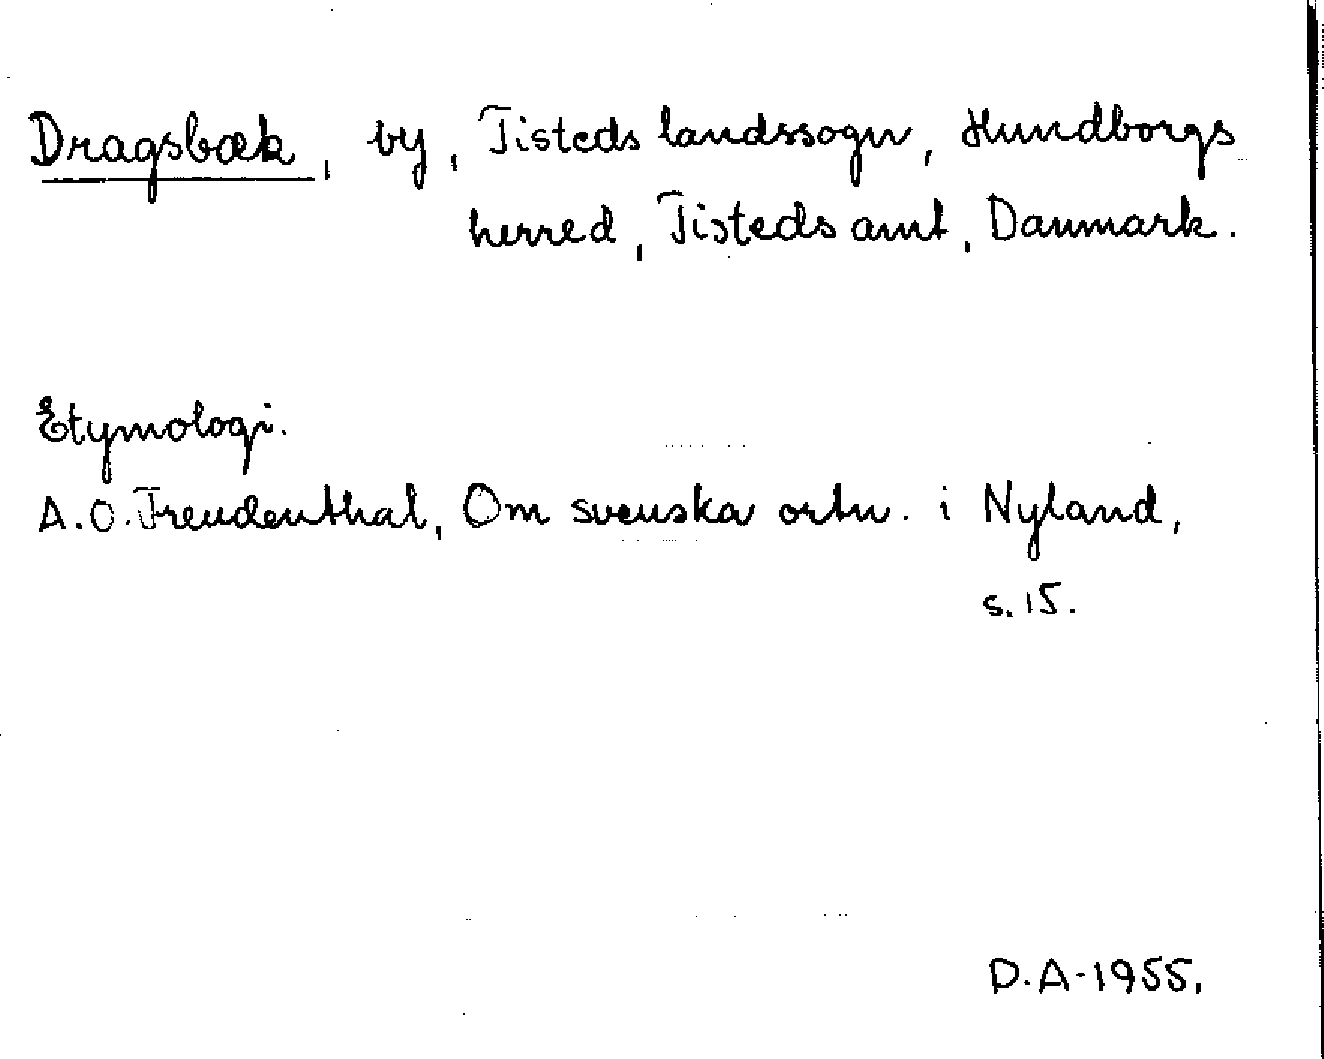 Dragsbæk, by, Tisteds landssogn, Hundborgs
herred, Tisteds amt, Danmark.
Etymologi.
A.O. Freudenthal, Om svenska ortn. i Nyland,
s. 15.
D.A-1955.